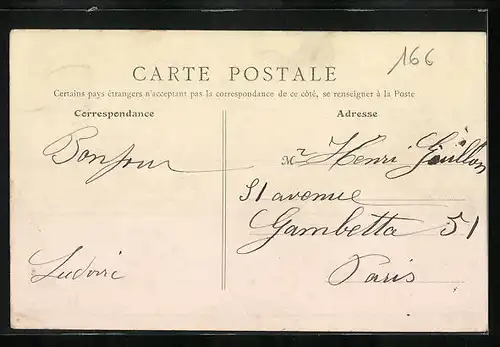 166
CARTE POSTALE
Certains pays étrangers n'acceptant pas la correspondance de ce côté, se renseigner à la Poste
Correspondance
Adresse
Bonjour
Mr Henri
51 avenue
Gambetta 51
Paris